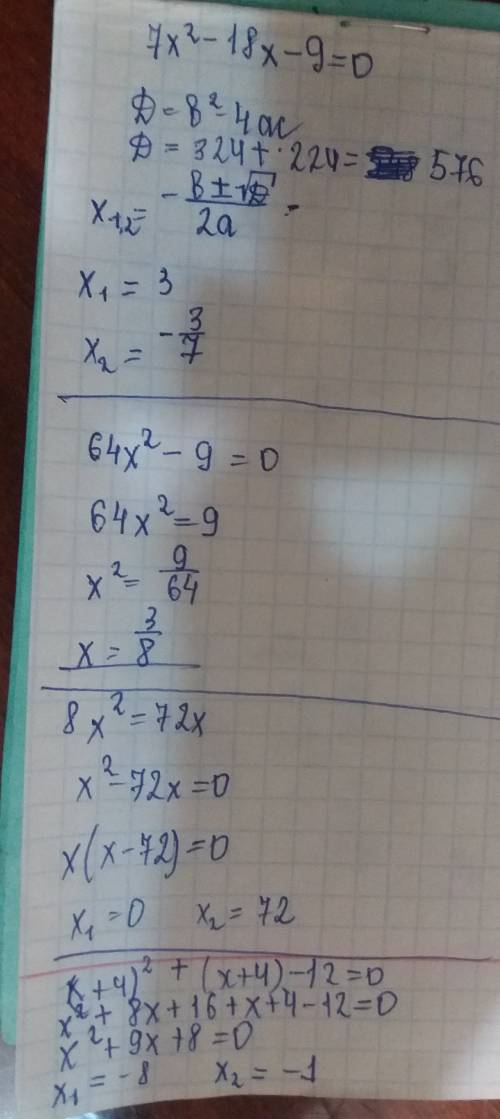 7x² - 18x - 9 = 0
D = b² - 4ac
D = 324 + 224 = 576
x₁,₂ = - b ± √D / 2a
x₁ = 3
x₂ = - 3/7
64x² - 9 = 0
64x² = 9
x² = 9/64
x = 3/8
8x² = 72x
x² - 72x = 0
x(x - 72) = 0
x₁ = 0 x₂ = 72
(x + 4)² + (x + 4) - 12 = 0
x² + 8x + 16 + x + 4 - 12 = 0
x² + 9x + 8 = 0
x₁ = -8 x₂ = -1